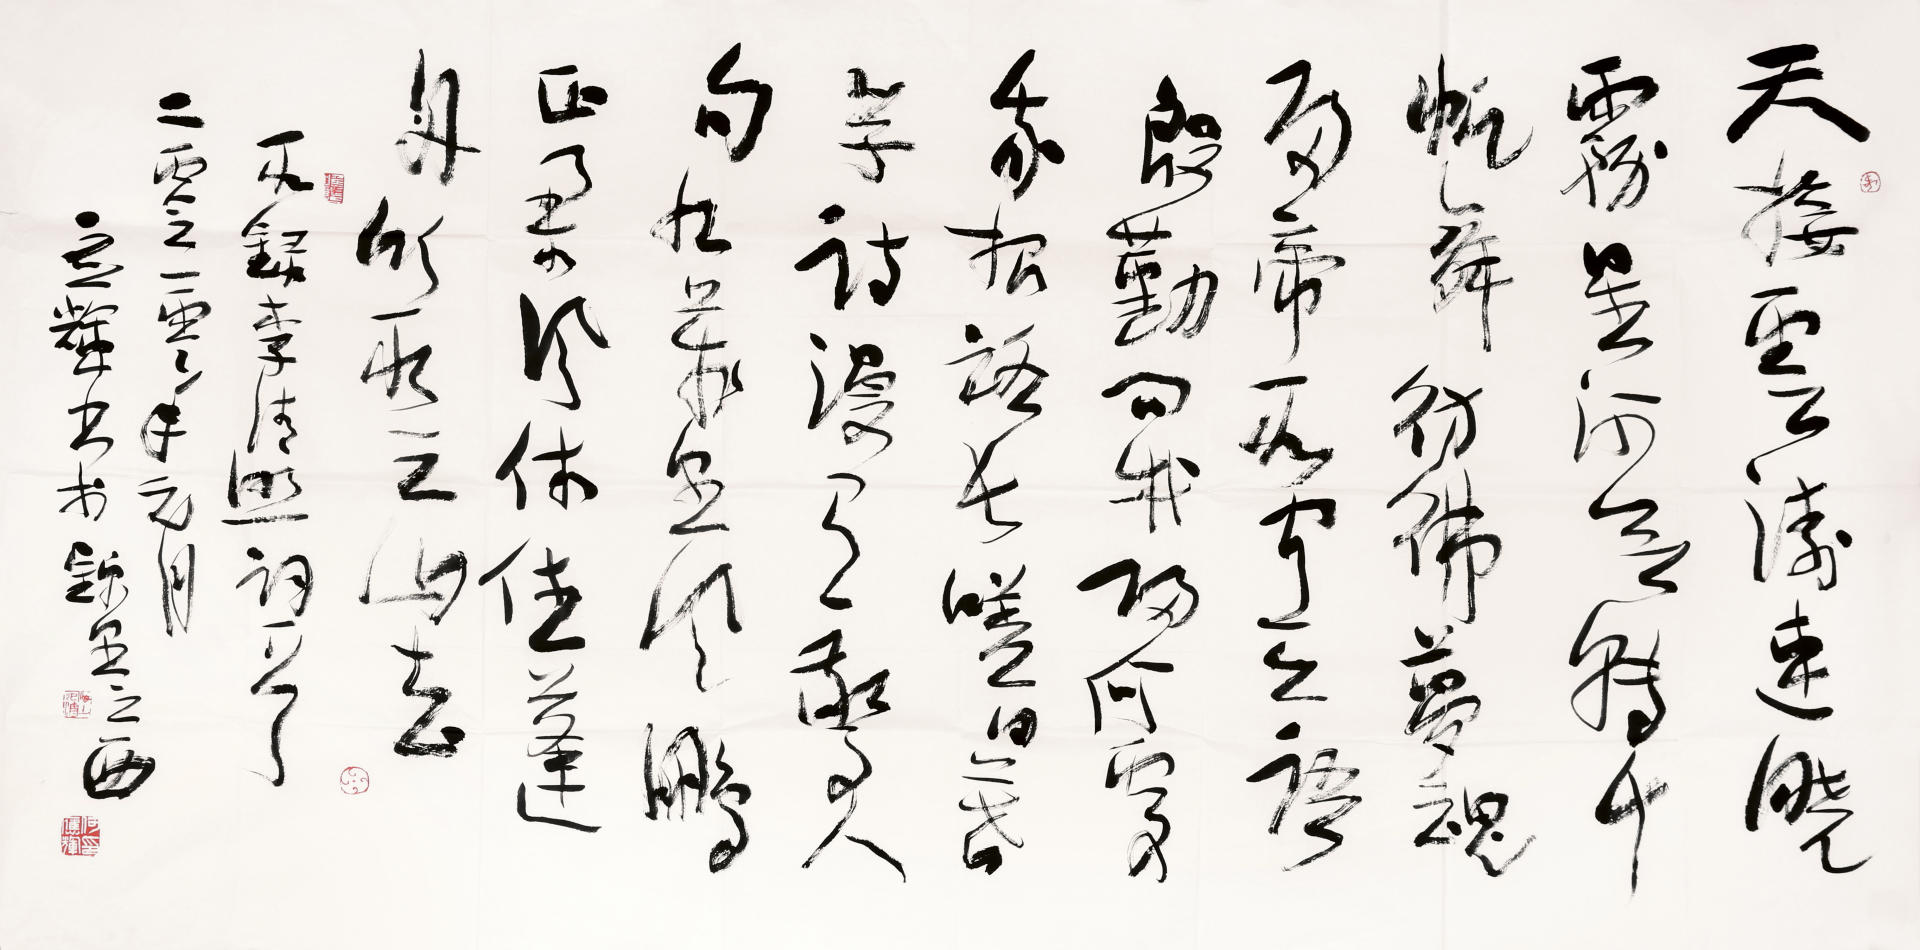 天接雲濤連曉
霧星河欲轉千
帆舞彷彿夢魂
歸帝所聞天語
殷勤問我歸何處
我報路長嗟日暮
學詩漫有驚人
句九萬里風鵬
正舉風休住蓬
舟吹取三山去
右錄李清照詞一首
二零二零年元月
輝書於錦里之西